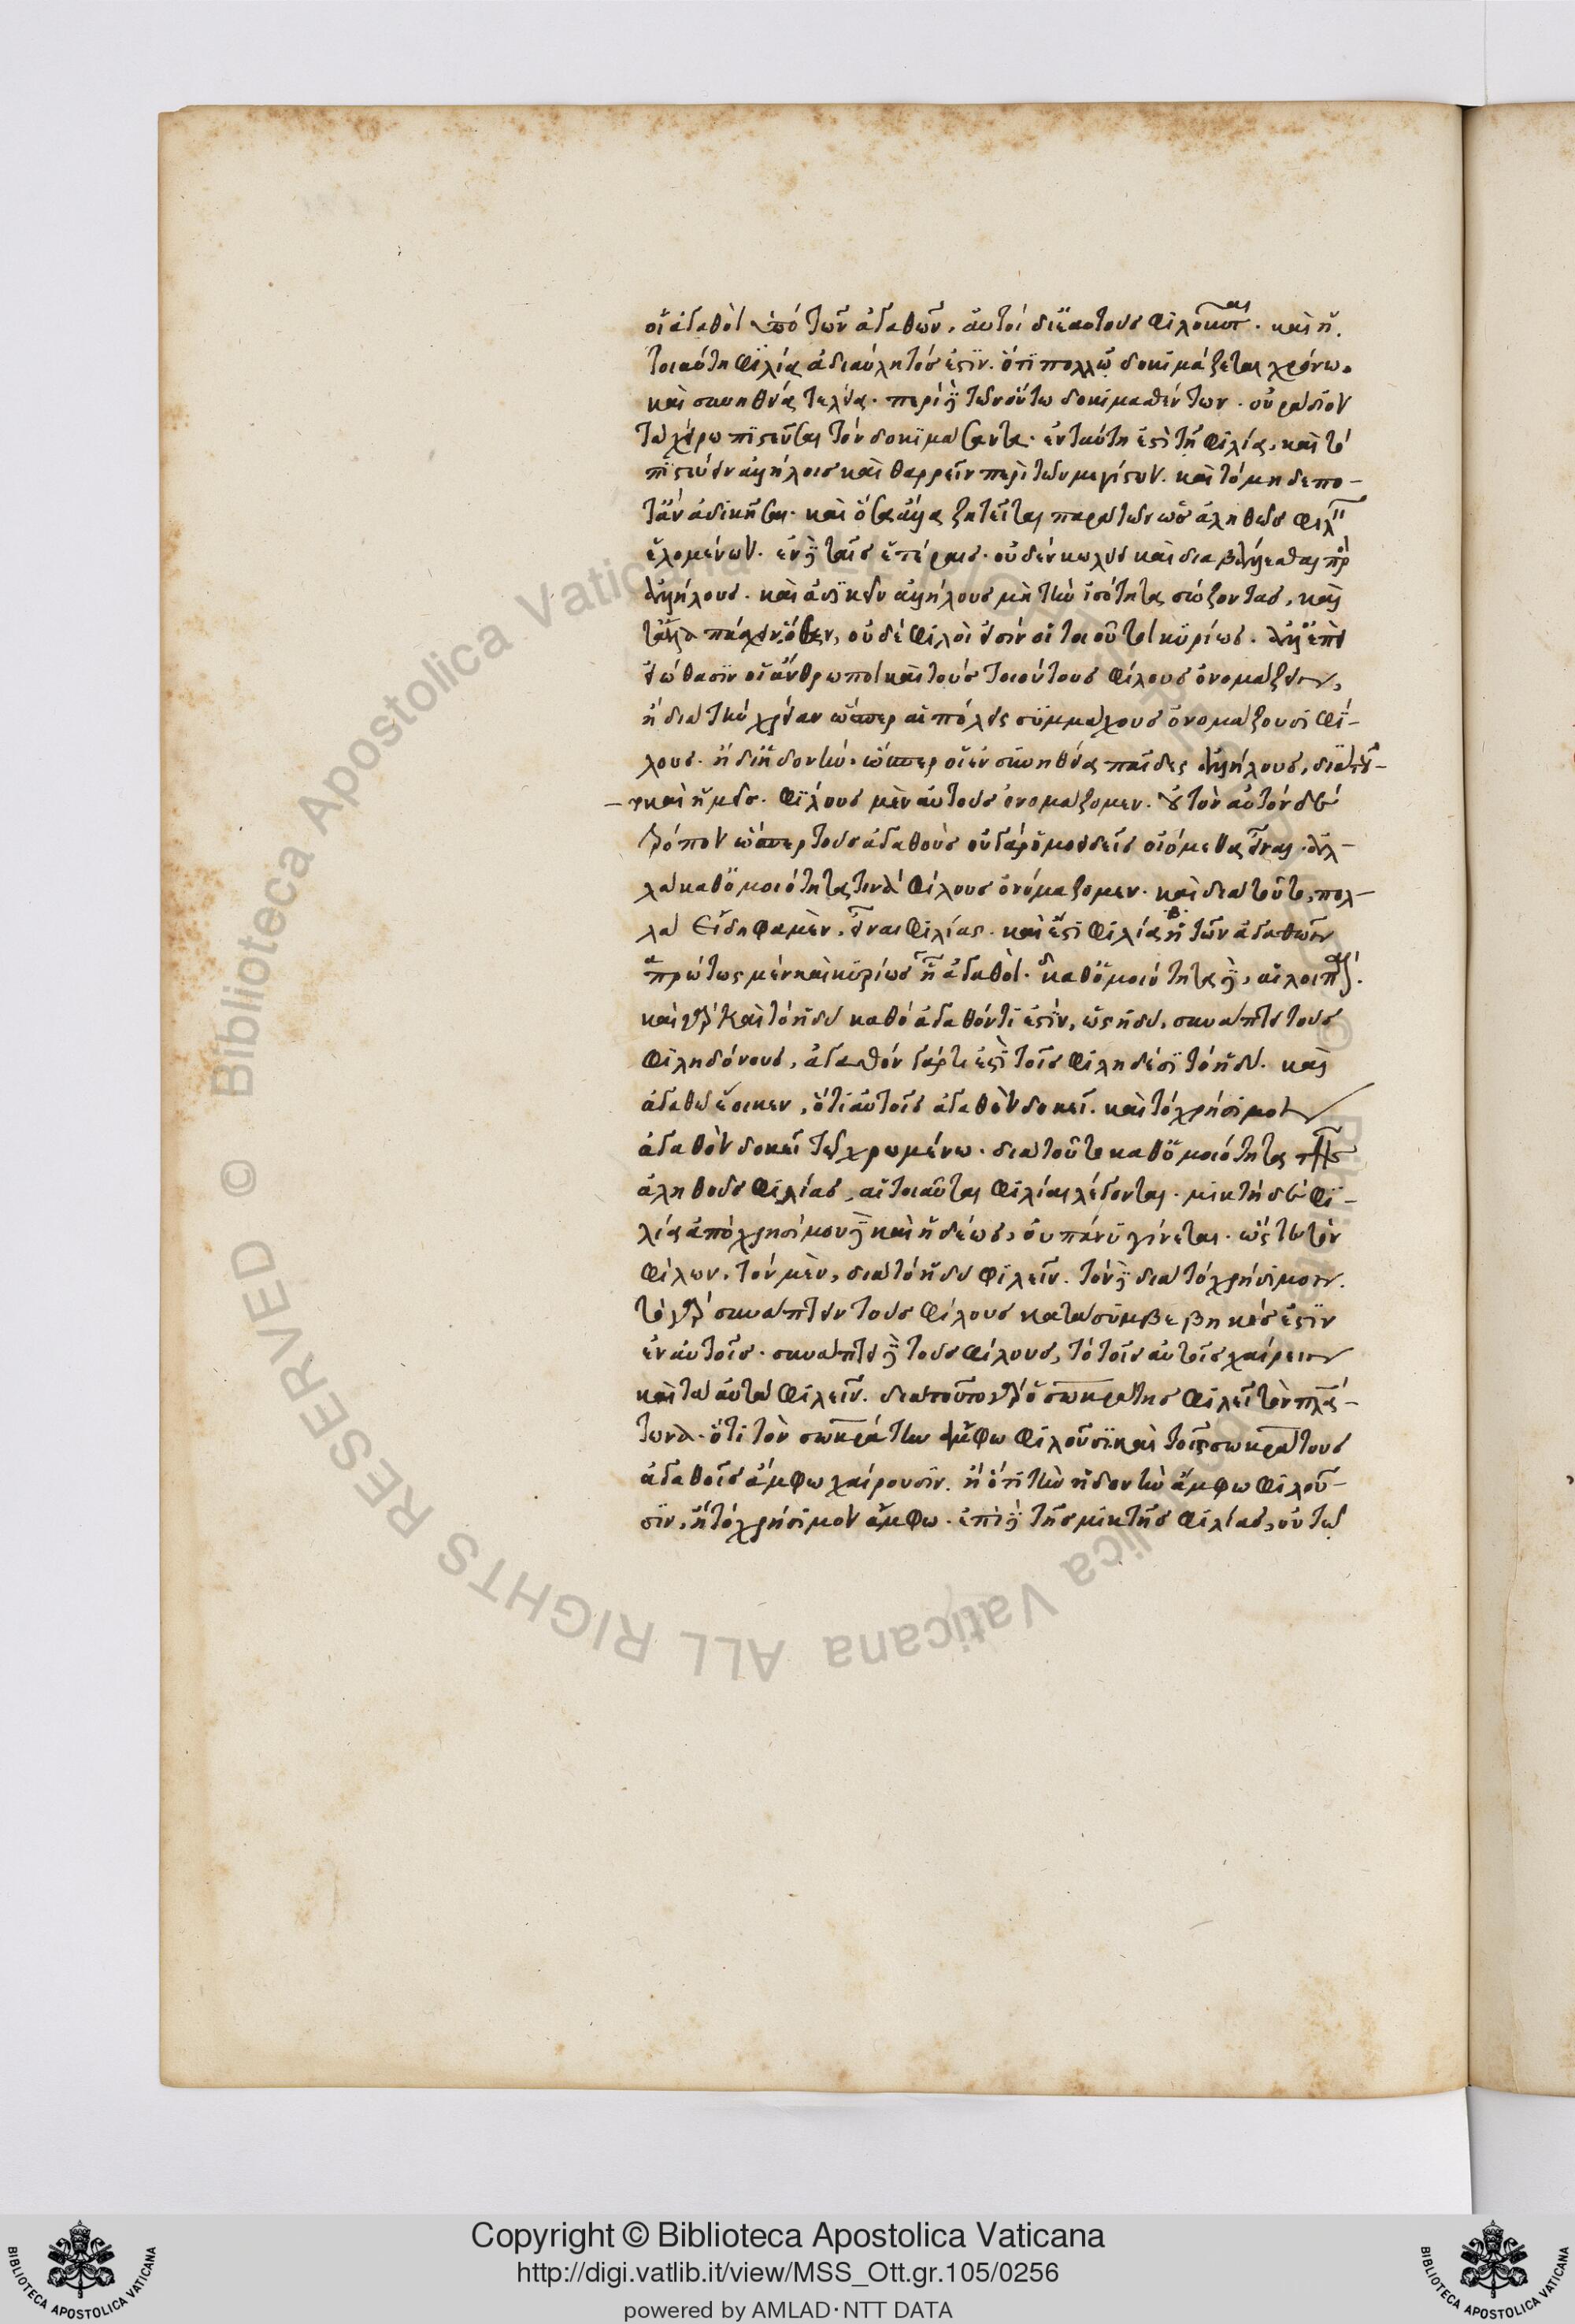 οἱ ἀγαθοὶ ὑπὸ τῶν ἀγαθῶν, αὐτοὶ δι' ἑαυτοὺς φιλοῦνται. καὶ ἡ
τοιαύτη φιλία ἀδιαύλητός ἐστιν. ὅτι πολλῷ δοκιμάζεται χρόνω.
καὶ συνηθεία τελεία. περὶ δὲ τῶν οὕτω δοκιμασθέντων. οὐ ράδιον
τῶ χείρω πιστεῦσαι τὸν δοκιμάσαντα. ἐν ταύτη ἐστὶ τῆ φιλία, καὶ τὸ
πιστεύειν ἀλλήλοις καὶ θαρρεῖν περὶ τῶν μεγίστων. καὶ τὸ μηδέπο-
τ' ἂν ἀδικῆσαι. καὶ ὅσα ἄλλα ζητεῖται παρὰ τῶν ὡς ἀληθῶς φιλ
ἑλομένων. ἐν δὲ ταῖς ἑτέραις. οὐδὲν κωλύει καὶ διαβάλλεσθαι πρὸς
ἀλλήλους. καὶ ἀδικεῖν ἀλλήλους μὴ τὴν ἰσότητα σώζοντας, καὶ
τἄλλα πάσχειν, ὅθεν, οὐδὲ φίλοι εἰσὶν οἱ τοιοῦτοι κυρίως. ἀλλ' ἐπεὶ
εἰώθασιν οἱ ἄνθρωποι καὶ τοὺς τοιούτους φίλους ὀνομάζειν,
ἢ διὰ τὴν χρείαν ὥσπερ αἱ πόλεις συμμάχους ὀνομάζουσι φί-
λους. ἢ δι' ἡδονήν. ὥσπερ οἱ ἐν συνηθεία παῖδες ἀλλήλους, διὰ τοῦ-
το καὶ ἡμεῖς. φίλους μὲν αὐτοὺς ὀνομάζομεν. οὐ τὸν αὐτὸν δὲ
τρόπον ὥσπερ τοὺς ἀγαθοὺς οὐ γὰρ ὁμοειδεῖς οἰόμεθα εἶναι. ἀλ-
λὰ καθ' ὁμοιότητα τινὰ φίλους ὀνόμαζομεν. καὶ διὰ τοῦτο, πολ-
λὰ εἴδη φαμὲν, εἶναι φιλίας. καὶ ἔστι φιλία ἡ τῶν ἀγαθῶν
πρώτως μὲν καὶ κυρίως ἧ ἀγαθοὶ. καθ' ὁμοιότητα δὲ, αἱ λοιπαί.
καὶ γὰρ καὶ τὸ ἡδὺ καθὸ ἀγαθόν τί ἐστιν, ὡς ἡδὺ, συνάπτει τοὺς
φιληδόνους, ἀγαθὸν γάρ τι ἐστὶ τοῖς φιληδέσι τὸ ἡδύ. καὶ
ἀγαθῶ ἔοικεν, ὅτι αὐτοῖς ἀγαθὸν δοκεῖ. καὶ τὸ χρήσιμον
ἀγαθὸν δοκεῖ τῶ χρωμένω. διὰ τοῦτο καθ' ὁμοιότητα τῆς
ἀληθοῦς φιλίας, αἱ τοιαῦται φιλίαι λέγονται. μικτὴ δὲ φι-
λία ἀπὸ χρησίμου δὲ καὶ ἡδέως, οὐ πάνυ γίνεται. ὥστε τὸν
φίλων, τὸν μὲν, διὰ τὸ ἡδὺ φιλεῖν. τὸν δὲ διὰ τὸ χρήσιμον.
τὸ γὰρ συνάπτειν τοὺς φίλους κατὰ συμβεβηκός ἐστιν
ἐν αὐτοῖς. συνάπτει δὲ τοὺς φίλους, τὸ τοῖς αὐτοῖς χαίρειν
καὶ τὰ αὐτὰ φιλεῖν. διὰ τοῦτο γὰρ ὁ σωκράτης φιλεῖ τὸν πλά-
τωνα. ὅτι τὸν σωκράτην ἄμφω φιλοῦσι καὶ τοῖς σωκράτους
ἀγαθοῖς ἄμφω χαίρουσιν. ἢ ὅτι τὴν ἡδονὴν ἄμφω φιλοῦ-
σιν, ἢ τὸ χρήσιμον ἄμφω. ἐπὶ δὲ τῆς μικτῆς φιλίας, οὕτω
Copyright © Biblioteca Apostolica Vaticana
http://digi.vatlib.it/view/MSS_Ott.gr.105/0256
powered by AMLAD·NTT DATA